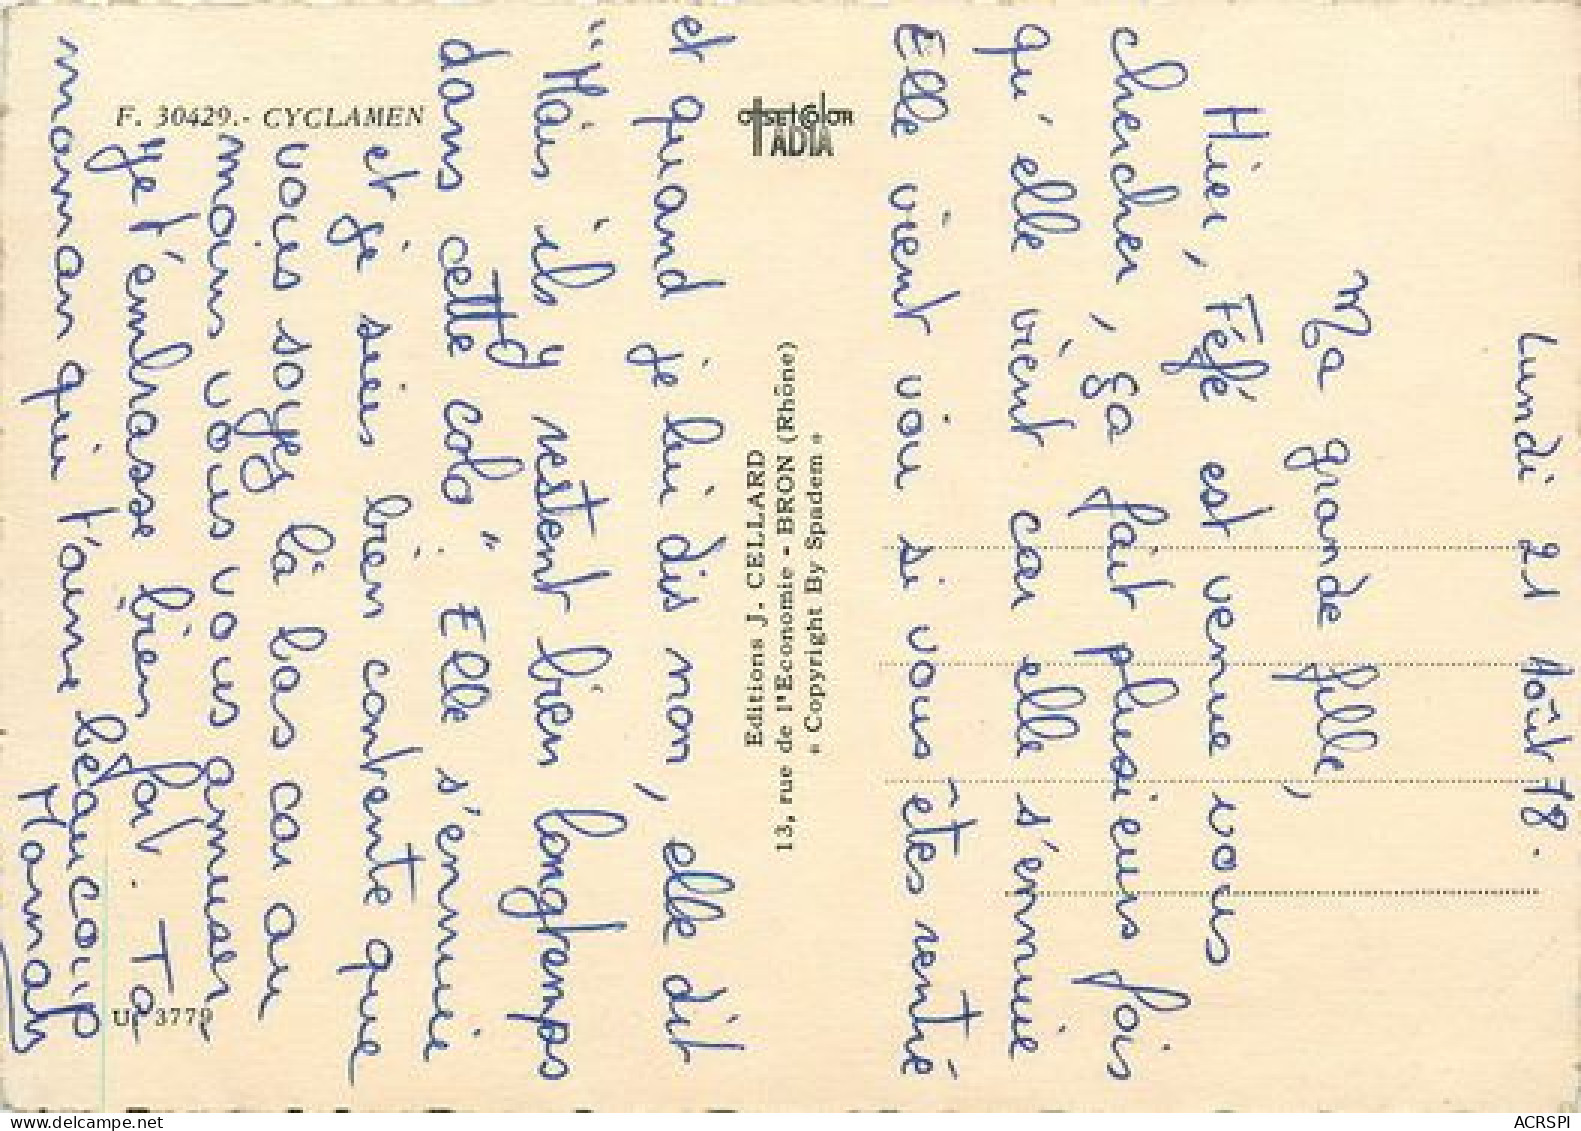 Lundi 21 Août 78.
Ma grande fille,
Hier, Féfé est venue vous
chercher, ça fait plusieurs fois
qu'elle vient car elle s'ennuie
Elle vient voir si vous êtes rentré
et quand je lui dis non, elle dit
"Mais ils y restent bien longtemps
dans cette colo". Elle s'ennuie
et je suis bien contente que
vous soyez là bas car au
moins vous vous amuser
je t'embrasse bien fort. Ta
maman qui t'aime beaucoup
Maman
F. 30429.- CYCLAMEN
OffsetColor
IADIA
Editions J. CELLARD
13, rue de l'Economie - BRON (Rhône)
« Copyright By Spadem »
U. 3779
www.delcampe.net
ACRSPI